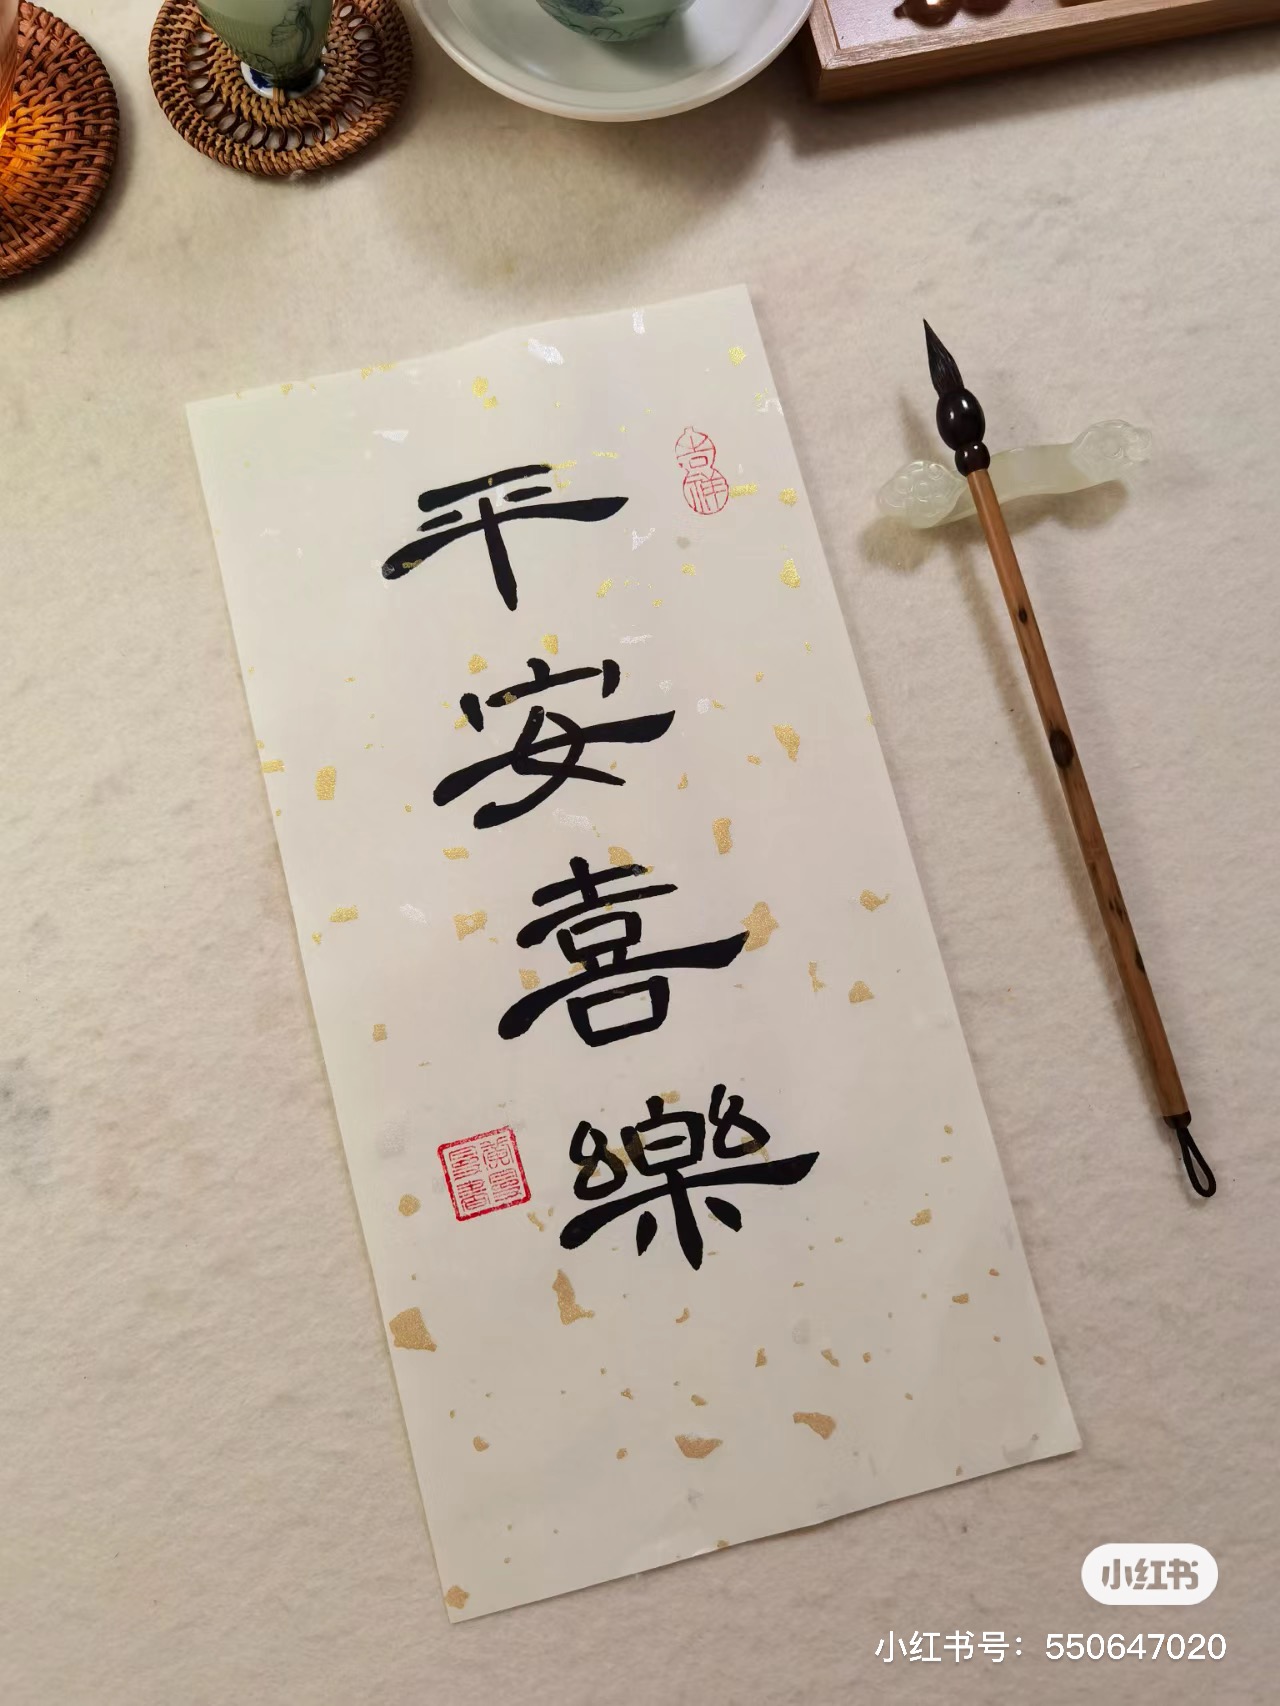 吉祥
平安喜樂
小红书
小红书号：550647020